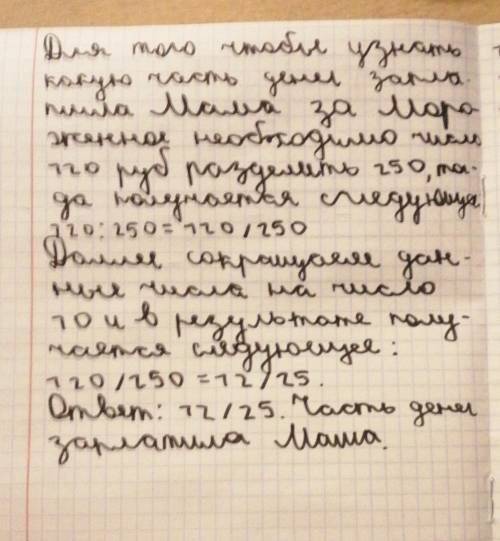 Для того чтобы узнать
какую часть денег запла-
тила Мама за Моро-
женное необходимо число
120 руб разделить 250, то-
да получается следующее
120:250=120/250
Далее сокращаем дан-
ные числа на число
10 и в результате полу-
чается следующее:
120/250=12/25.
Ответ: 12/25. Часть денег
заплатила Маша.